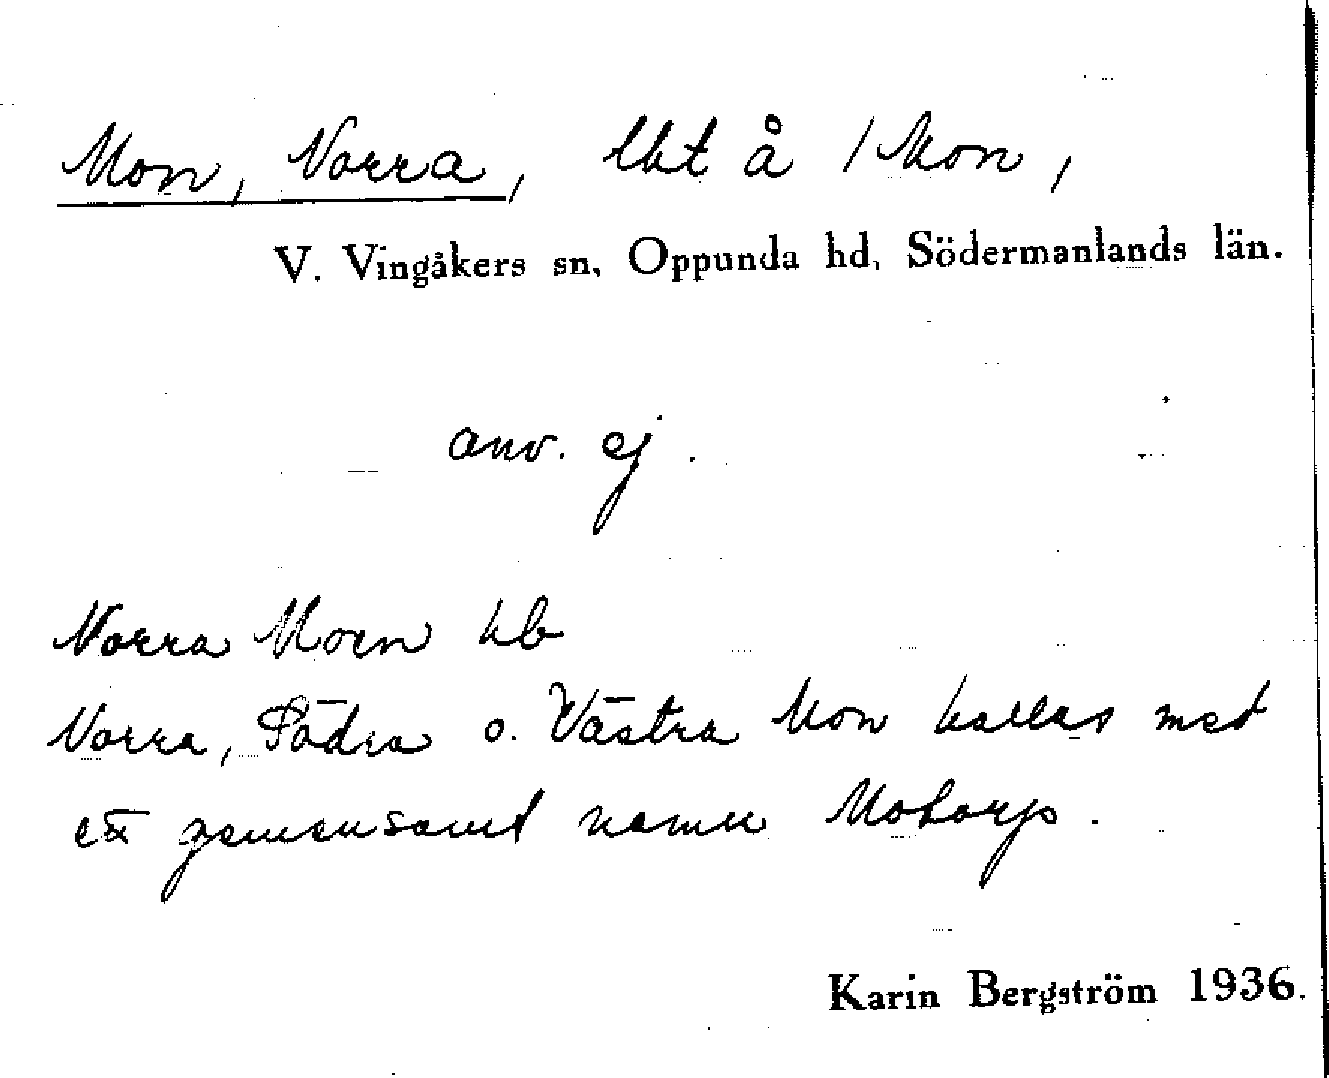 Mon, Norra, lht å 1 Mon,
V. Vingåkers sn, Oppunda hd, Södermanlands län.
anv. ej.
Norra Moen hb
Norra, Södra o. Västra Mon kallas med
ett gemensamt namn Motorp.
Karin Bergström 1936.